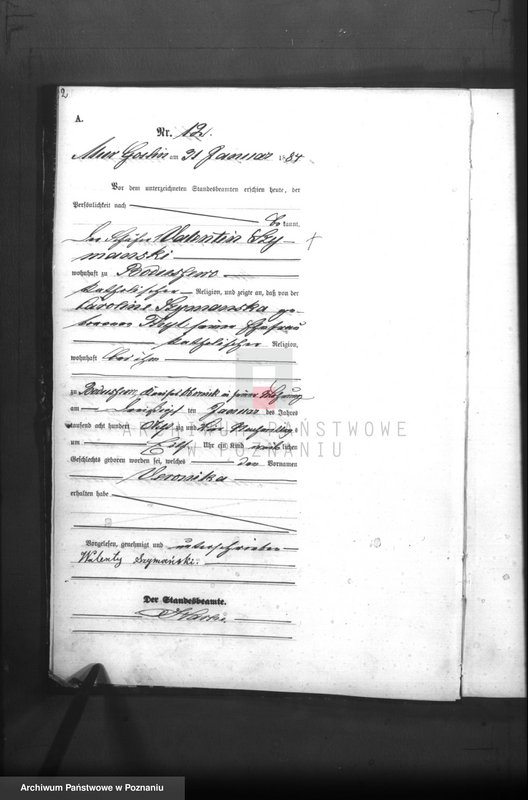 2
A.
Nr. 12.
Mur Goslin am 31 Januar 1884
Vor dem unterzeichneten Standesbeamten erschien heute, der
Persönlichkeit nach
be kannt,
der Schäfer Valentin Szy-
manski
wohnhaft zu
katholischer Religion, und zeigte an, daß von der
Caroline Szymanska ge-
borenen seiner Ehefrau
katholischer Religion,
wohnhaft bei ihm
zu in seiner Wohnung
am dreißigsten Januar des Jahres
tausend acht hundert achtzig und vier Nachmittags
um Uhr ein Kind weiblichen
Geschlechts geboren worden sei, welches den Vornamen
Veronika
erhalten habe
Vorgelesen, genehmigt und unterschrieben
Walenty Szymański.
Der Standesbeamte.
ARCHIWUM PAŃSTWOWE
W POZNANIU
Archiwum Państwowe w Poznaniu